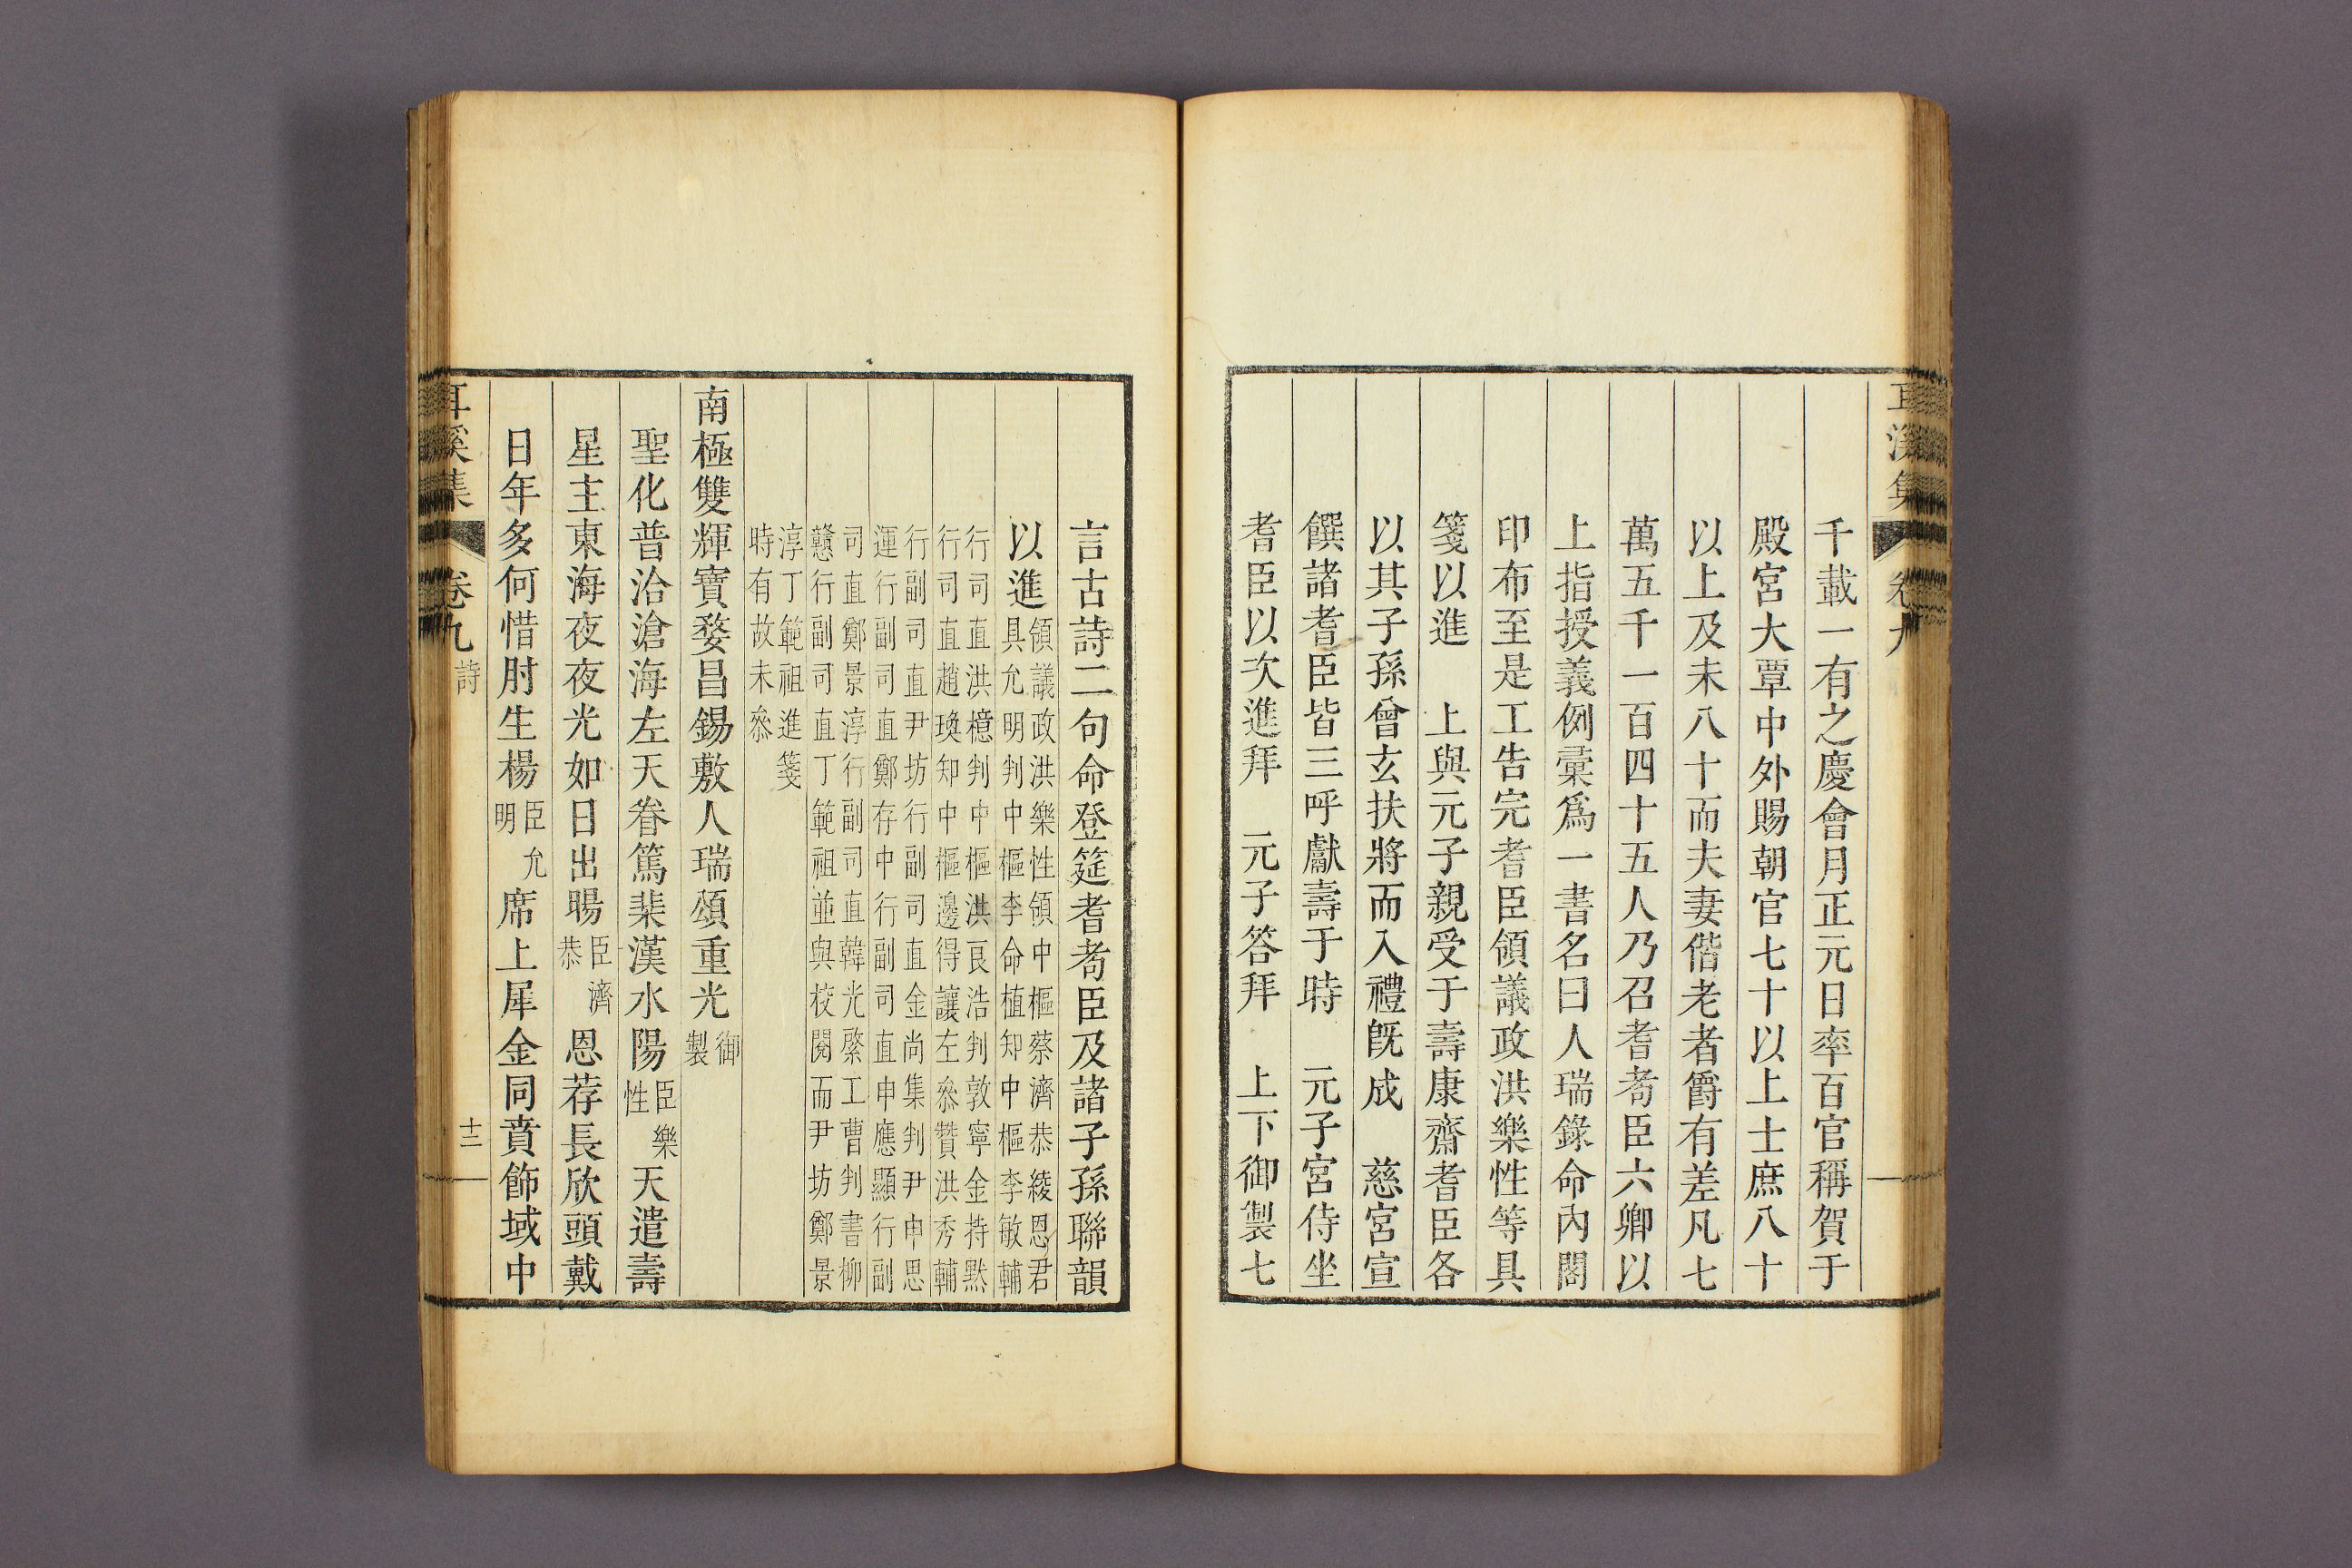 千載一有之慶會月正元日率百官稱賀于
殿宮大覃中外賜朝官七十以上士庶八十
以上及未八十而夫妻偕老者爵有差凡七
萬五千一百四十五人乃召耆耇臣六卿以
上指授義例彙爲一書名曰人瑞錄命內閣
印布至是工告完耆臣領議政洪樂性等具
箋以進　上與元子親受于壽康齋耆臣各
以其子孫曾玄扶將而入禮旣成　慈宮宣
饌諸耆臣皆三呼獻壽于時　元子宮侍坐
耆臣以次進拜　元子答拜　上下御製七
言古詩二句命登筵耆耇臣及諸子孫聯韻
以進領議政洪樂性領中樞蔡濟恭綾恩君
具允明判中樞李命植知中樞李敏輔
行司直洪檍判中樞洪良浩判敦寧金持默
行司直趙瑍知中樞邊得讓左參贊洪秀輔
行副司直尹坊行副司直金尚集判尹申思
運行副司直鄭存中行副司直申應顯行副
司直鄭景淳行副司直韓光綮工曹判書柳
戇行副司直丁範祖並與校閱而尹坊鄭景
淳丁範祖進箋
時有故未參
南極雙輝寶婺昌錫敷人瑞頌重光御製
聖化普洽滄海左天眷篤棐漢水陽臣樂性天遣壽
星主東海夜夜光如日出暘臣濟恭恩荐長欣頭戴
日年多何惜肘生楊臣允明席上犀金同賁飾域中
耳溪集　卷九　詩　十二